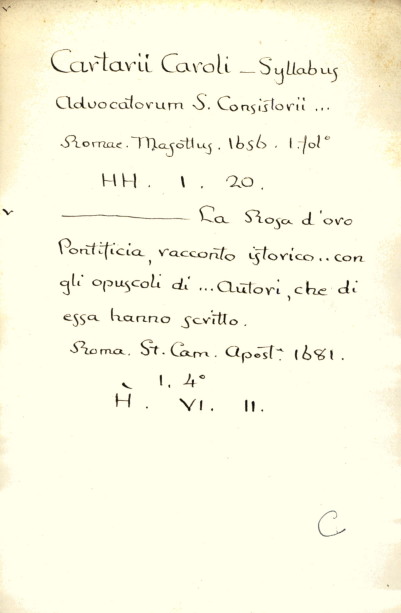 Cartarii Caroli – Syllabus
Advocatorum S. Consistorii ...
Romae. Mascottus. 1656. 1. fol°
HH. 1. 20.
——— La Rosa d'oro
Pontificia, racconto istorico .. con
gli opuscoli di ... Autori, che di
essa hanno scritto.
Roma. St. Cam. Apost. 1681.
1. 4°
H̀. VI. II.
C